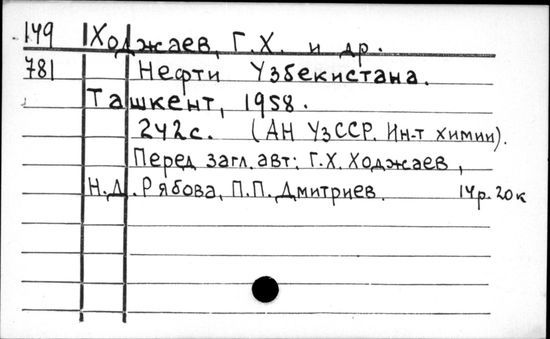 149 Ходжаев, Г.Х. и др.
781 Нефти Узбекистана.
Ташкент, 1958.
242с. (АН УзССР. Ин-т химии).
Перед загл. авт: Г.Х. Ходжаев,
Н.Д. Рябова, П.П. Дмитриев. 14р. 20к